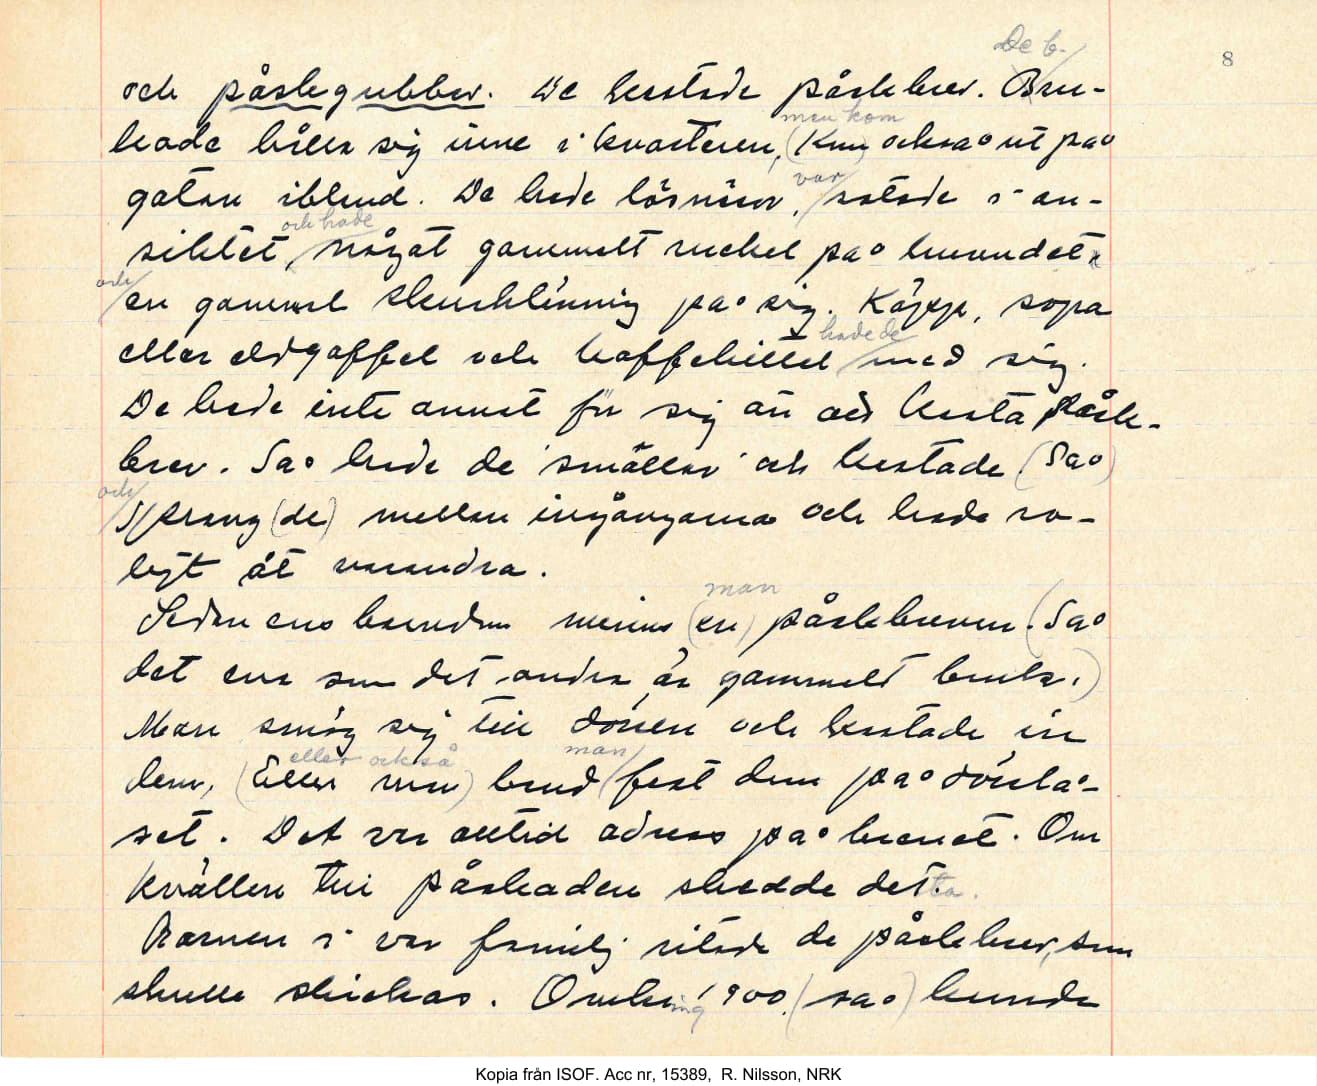 De b.
8
och påskgubbar. De kastade påskbrev. Bru-
men kom
kade hålla sig inne i kvarteren, (Kom) också ut på
var
gatan ibland. De hade lösnäsor, sotade i an-
och hade
siktet, något gammalt ruckel på huvudet
och
en gammal skurklänning på sig. Käpp, sopa
hade de
eller eldgaffel och kaffekittel med sig.
De hade inte annat för sig än att kasta påsk-
brev. Så hade de smällar och kastade (Så)
och
sprang (de) mellan ingångarna och hade ro-
ligt åt varandra.
man
Sedan ens barndom minns (en) påskbreven. (Så
det ena som det andra är gammalt bruk.)
Man smög sig till dörren och kastade in
eller också man
dem, (Eller man) band fast dem på dörrlå-
set. Det var alltid adress på brevet. Om
kvällen till påskaden skedde detta.
Barnen i var familj ritade de påskbrev, som
skulle skickas. Omkring 1900 (så) kunde
Kopia från ISOF. Acc nr, 15389, R. Nilsson, NRK